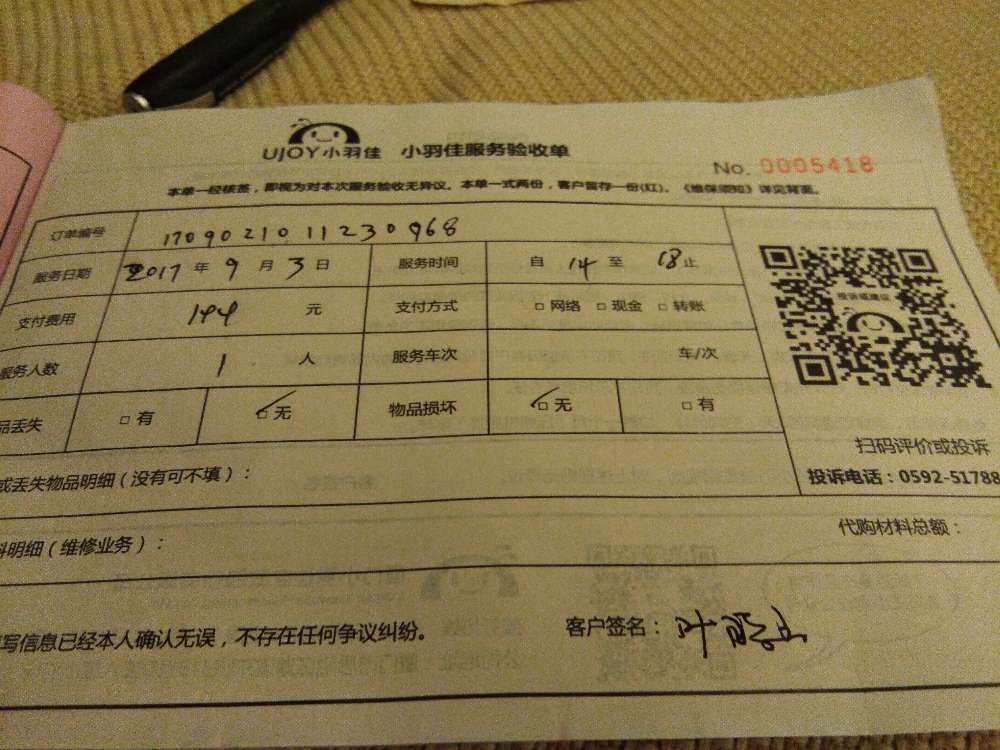 UJOY小羽佳 小羽佳服务验收单
No. 0005418
本单一经核签，即视为对本次服务验收无异议。本单一式两份，客户留存一份(红)。《维保须知》详见背面。
订单编号 1709021011230968
服务日期 2017年9月3日 服务时间 自14至18止
支付费用 144元 支付方式 □网络 □现金 □转账
服务人数 1人 服务车次 车/次
品丢失 □有 □无 物品损坏 □无 □有
投诉或建议
扫码评价或投诉
投诉电话：0592-51788
或丢失物品明细（没有可不填）：
料明细（维修业务）：
代购材料总额：
写信息已经本人确认无误，不存在任何争议纠纷。
客户签名：叶